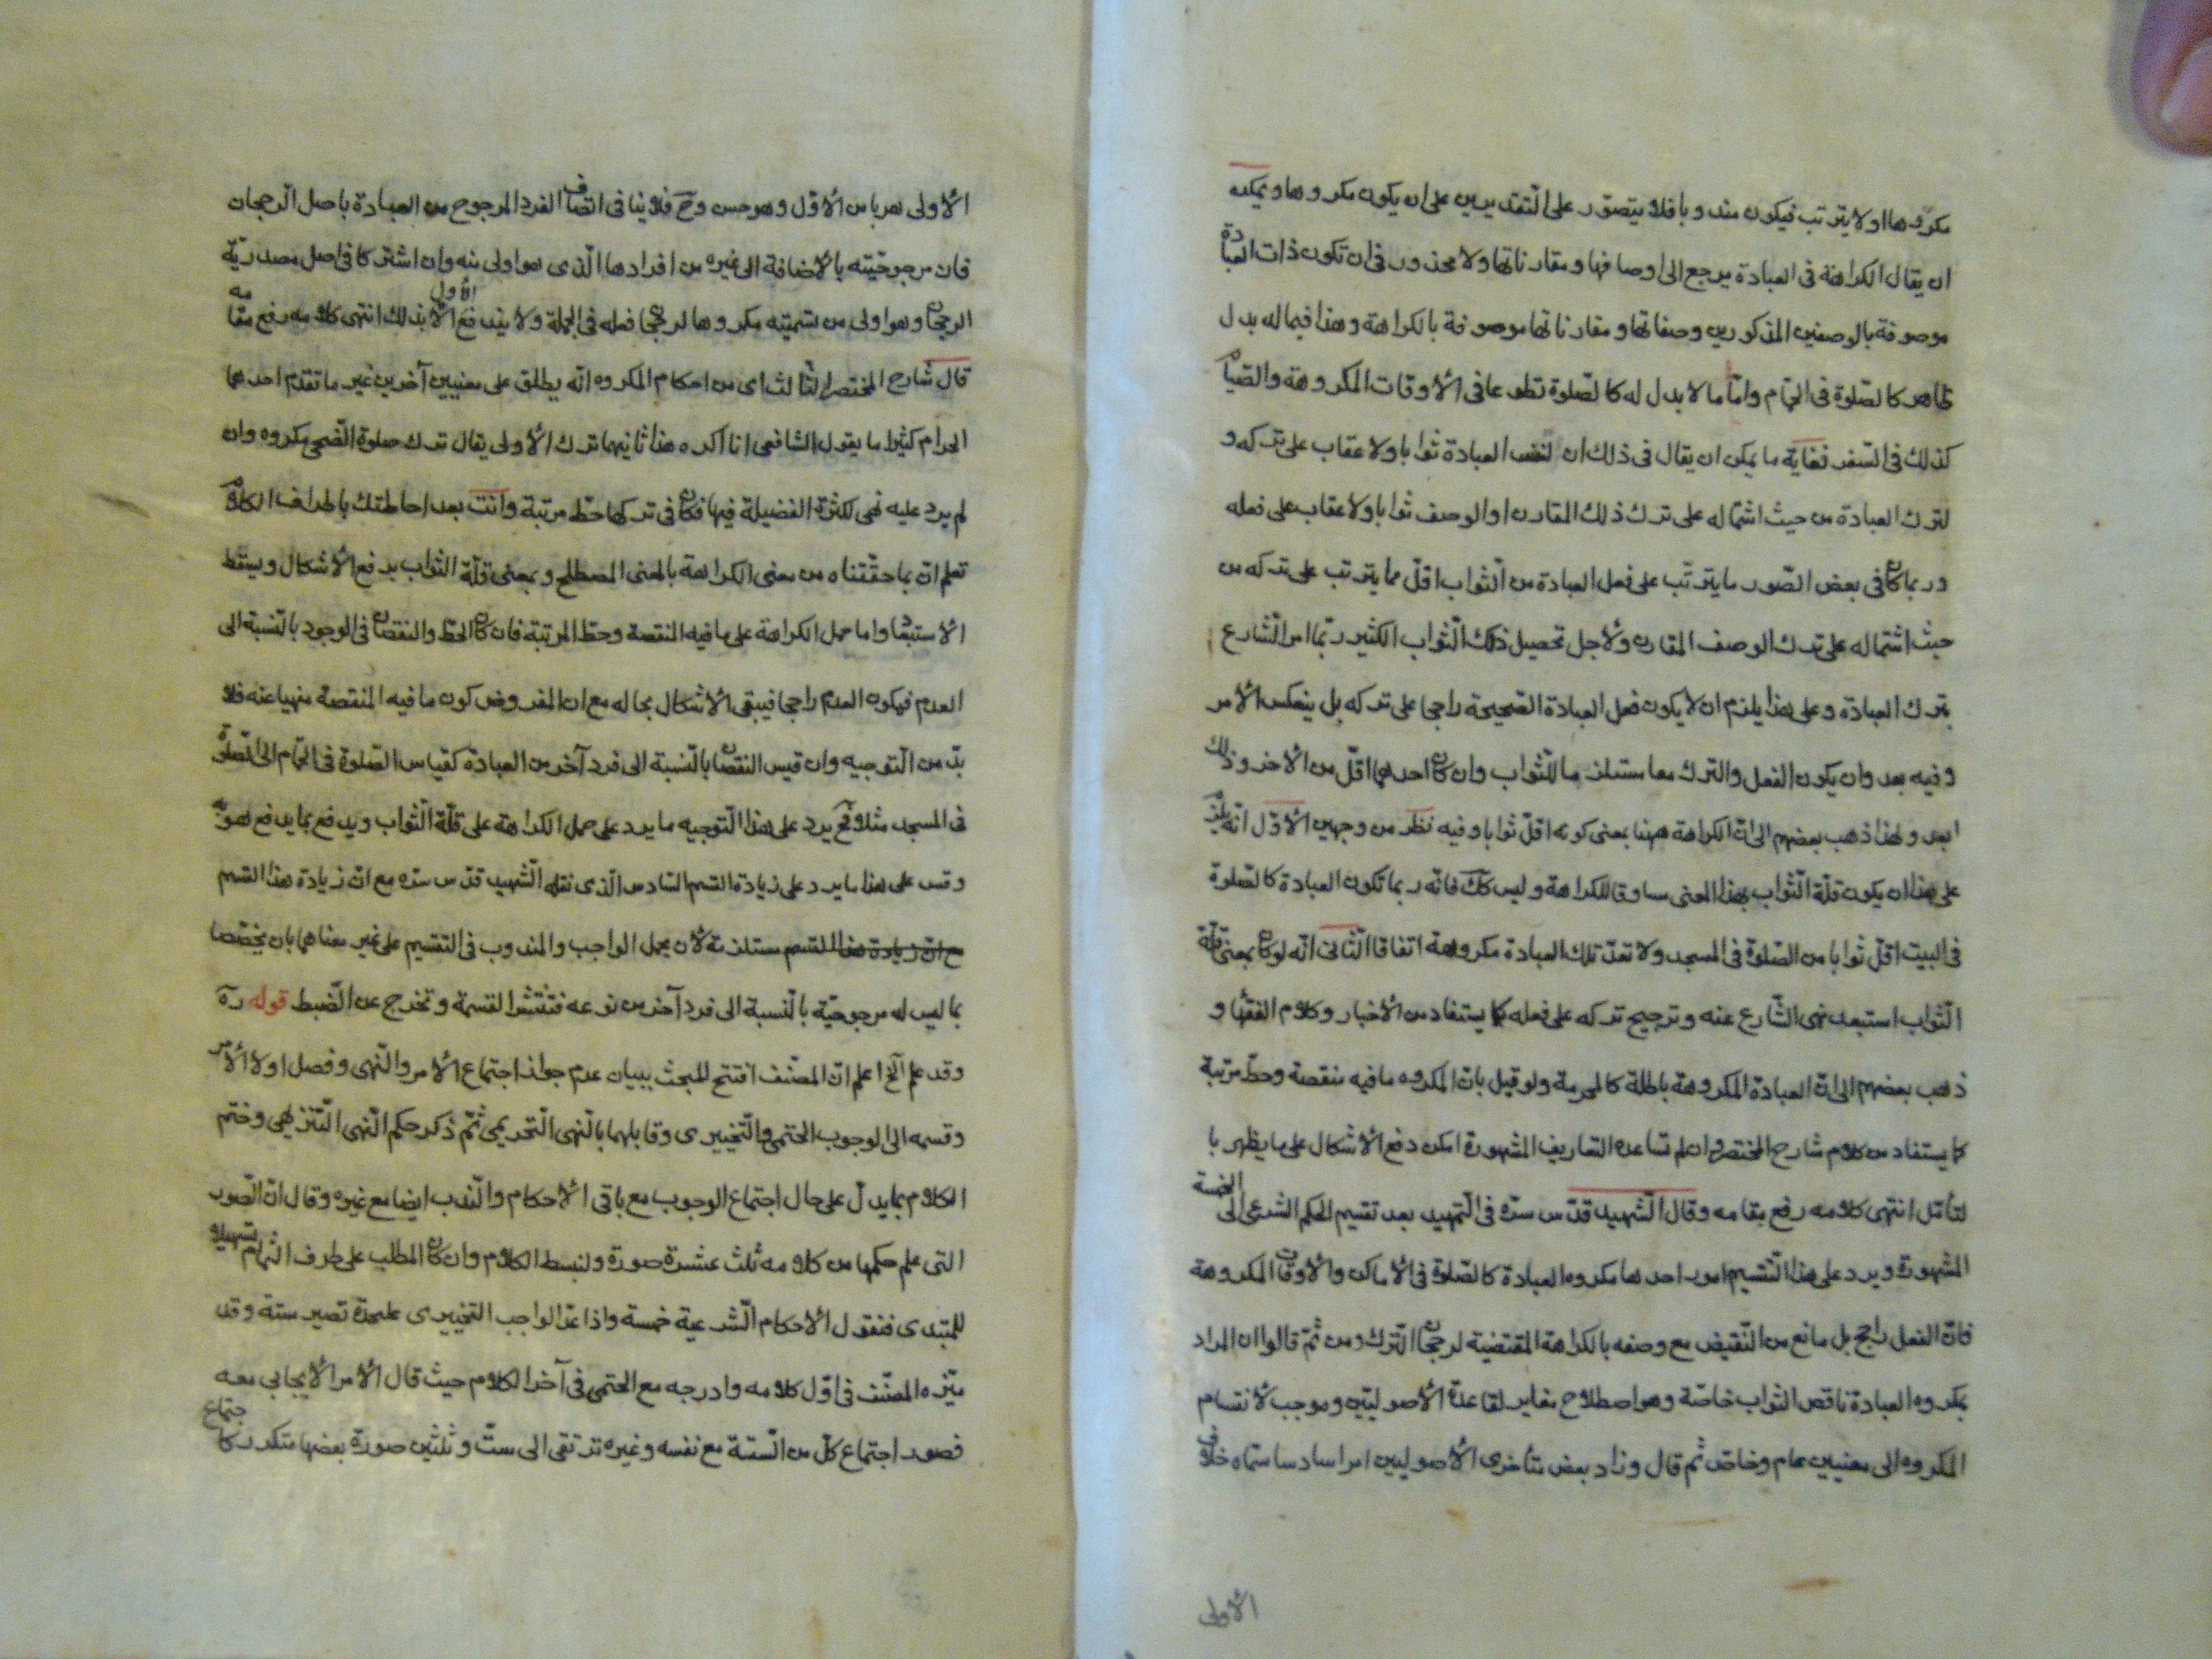 مكروها اولا يترتب فيكون مندوبا فلا يتصور على التقديرين على ان يكون مكروها ويمكن
ان يقال الكراهة فى العبادة يرجع الى اوصافها ومقارناتها ولا محذور فى ان تكون ذات العبادة
موصوفة بالوصفين المذكورين وصفاتها ومقارناتها موصوفة بالكراهة وهذا فيما له بدل
ظاهر كالصّلوة فى الحمّام وامّا ما لا بدل له كالصّلوة تطوعا فى الأوقات المكروهة والصّيام
كذلك فى السّفر فغاية ما يمكن ان يقال فى ذلك ان لنفس العبادة ثوابا ولا عقاب على تركه و
لترك العبادة من حيث اشتماله على ترك ذلك المقارن او الوصف ثوابا ولا عقاب على فعله
وربما كان فى بعض الصّور ما يترتّب على فعل العبادة من الثّواب اقلّ مما يترتب على تركه من
حيث اشتماله على ترك الوصف المقارن ولأجل تحصيل ذلك الثّواب الكثير ربّما امر الشّارع
بترك العبادة وعلى هذا يلزم ان لا يكون فعل العبادة الصّحيحة راجحا على تركه بل ينعكس الأمر
وفيه بعد وان يكون الفعل والترك معا مستلزما للثّواب وان كان احدهما اقلّ من الآخر وذلك
ابعد ولهذا ذهب بعضهم الى انّ الكراهة ههنا بمعنى كونه اقلّ ثوابا وفيه نظر من وجهين الأوّل انّه يلزم
على هذا ان يكون قلّة الثّواب بهذا المعنى مساوقا للكراهة وليس كك فانّه ربما تكون العبادة كالصّلوة
فى البيت اقلّ ثوابا من الصّلوة فى المسجد ولا تعدّ تلك العبادة مكروهة اتفاقا الثّانى انّه لو كان بمعنى قلّة
الثّواب استبعد نهى الشّارع عنه وترجيح تركه على فعله كما يستفاد من الأخبار وكلام الفقهاء و
ذهب بعضهم الى انّ العبادة المكروهة باطلة كالمحرمة ولو قيل بانّ المكروه ما فيه منقصة وحطّ مرتبة
كما يستفاد من كلام شارح المختصر وان لم تساعده التعاريف المشهورة امكن دفع الأشكال على ما يظهر با
لتأمّل انتهى كلامه رفع مقامه وقال الشّهيد قدّس سرّه فى التّمهيد بعد تقسيم الحكم الشّرعى الى الخمسة
المشهورة ويرد على هذا التّقسيم امور احدها مكروه العبادة كالصّلوة فى الأماكن والأوقات المكروهة
فانّ الفعل راجح بل مانع من النّقيض مع وصفه بالكراهة المقتضية لرجحان التّرك ومن ثمّ قالوا ان المراد
بمكروه العبادة ناقص الثواب خاصّة وهو اصطلاح مغاير لقاعدة الأصوليّين وموجب لأنقسام
المكروه الى معنيين عام وخاصّ ثم قال وزاد بعض متأخرى الأصوليين امرا سادسا سمّاه خلاف
الأولى
الأولى هربا من الأوّل وهو حسن وح فلا ينافى اتّصاف الفرد المرجوح من العبادة باصل الرّجحان
فان مرجوحيّته بالأضافة الى غيره من افرادها الّذى هو اولى منه وان اشتركا فى اصل مصدريّة
الرجحان وهو اولى من تسميته مكروها لرجحان فعله فى الجملة ولا يندفع الأوّل الا بذلك انتهى كلامه رفع مقامه
قال شارح المختصر الثّالث اى من احكام المكروه انّه يطلق على معنيين آخرين غير ما تقدم احدهما
الحرام كثيرا ما يقول الشافعى انا اكره هذا ثانيهما ترك الأولى يقال ترك صلوة الضّحى مكروه وان
لم يرد عليه نهى لكثرة الفضيلة فيها فكان فى تركها حطّ مرتبة وانت بعد احاطتك باطراف الكلام
تعلم انّ بما حقّقناه من معنى الكراهة بالمعنى المصطلح وبمعنى قلّة الثّواب يدفع الأشكال ويسقط
الاستبعاد واما حمل الكراهة على ما فيه المنقصة وحطّ المرتبة فان كان الحطّ والنقصان فى الوجود بالنّسبة الى
العدم فيكون العدم راجحا فيبقى الأشكال بحاله مع ان المفروض كون ما فيه المنقصة منهيا عنه فلا
بدّ من التّوجيه وان قيس النقصان بالنّسبة الى فرد آخر من العبادة كقياس الصّلوة فى الحمّام الى الصّلوة
فى المسجد مثلا فح يرد على هذا التّوجيه ما يرد على حمل الكراهة على قلّة الثّواب ويدفع بما يدفع هو به
وقس على هذا ما يرد على زيادة القسم السّادس الّذى نقله الشّهيد قدّس سرّه مع انّ زيادة هذا القسم
مع انّ زيادة هذا القسم مستلزمة لأن يحمل الواجب والمندوب فى التقسيم على غير معناهما بان يخصّصا
بما ليس له مرجوحيّة بالنّسبة الى فرد آخر من نوعه فتنتشر القسمة وتخرج عن الضّبط قوله ره
وقد علم الخ اعلم انّ المصنّف افتتح المبحث ببيان عدم جواز اجتماع الأمر والنّهى وفصل اولا الأمر
وقسمه الى الوجوب الحتمى والتّخييرى وقابلهما بالنّهى التّحريمى ثمّ ذكر حكم النّهى التّنزيهى وختم
الكلام بما يدلّ على حال اجتماع الوجوب مع باقى الأحكام والنّدب ايضا مع غيره وقال انّ الصّور
التى علم حكمها من كلامه ثلث عشرة صورة ولنبسط الكلام وان كان المطلب على طرف الثّمام تسهيلا
للمبتدى فنقول الأحكام الشّرعية خمسة واذا عدّ الواجب التخييرى عليحدة تصير ستة وقد
ميّزه المصنّف فى اوّل كلامه وادرجه مع الحتمى فى آخر الكلام حيث قال الأمر الأيجابى معه
فصور اجتماع كلّ من السّتة مع نفسه وغيره ترتقى الى ستّ وثلثين صورة بعضها متكرر كاجتماع